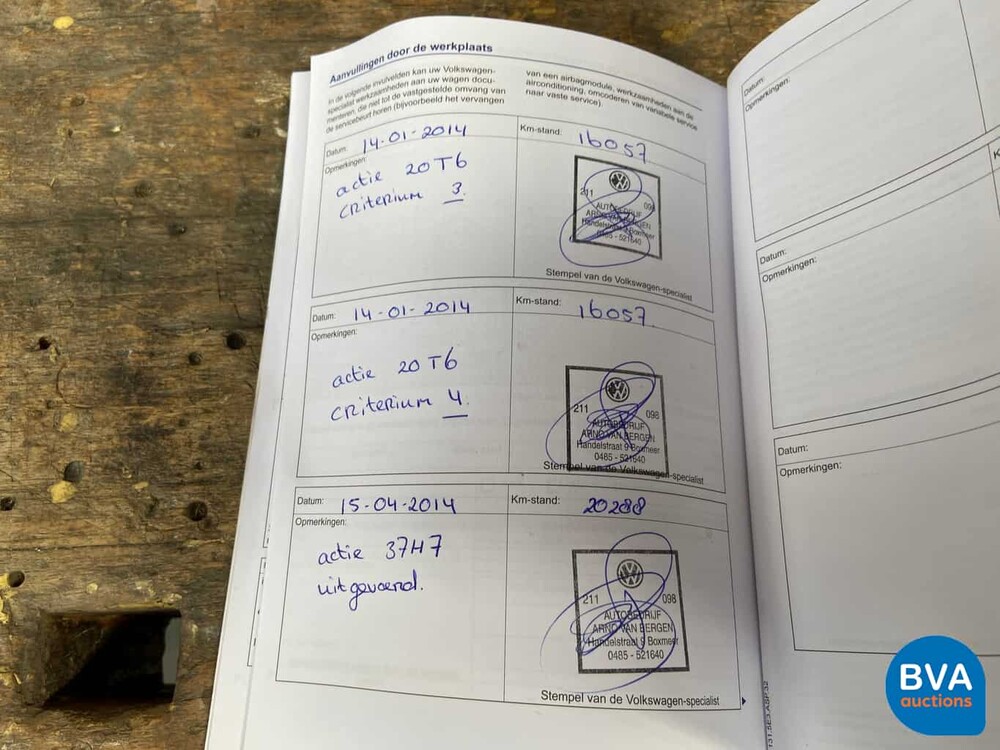 Aanvullingen door de werkplaats
In de volgende invulvelden kan uw Volkswagen-
specialist werkzaamheden aan uw wagen docu-
menteren, die niet tot de vastgestelde omvang van
de servicebeurt horen (bijvoorbeeld het vervangen
van een airbagmodule, werkzaamheden aan de
airconditioning, omcoderen van variabele service
naar vaste service).
Datum: 14-01-2014
Km-stand: 16057
Opmerkingen:
actie 20T6
criterium 3.
211 098
AUTOBEDRIJF
ARNO VAN BERGEN
Handelstraat 9 Boxmeer
0485 - 521640
Stempel van de Volkswagen-specialist
Datum: 14-01-2014
Km-stand: 16057
Opmerkingen:
actie 20T6
criterium 4.
211 098
AUTOBEDRIJF
ARNO VAN BERGEN
Handelstraat 9 Boxmeer
0485 - 521640
Stempel van de Volkswagen-specialist
Datum: 15-04-2014
Km-stand: 20288
Opmerkingen:
actie 37H7
uitgevoerd.
211 098
AUTOBEDRIJF
ARNO VAN BERGEN
Handelstraat 9 Boxmeer
0485 - 521640
Stempel van de Volkswagen-specialist
Datum:
Opmerkingen:
Datum:
Opmerkingen:
Datum:
Opmerkingen:
K
BVA
auctions